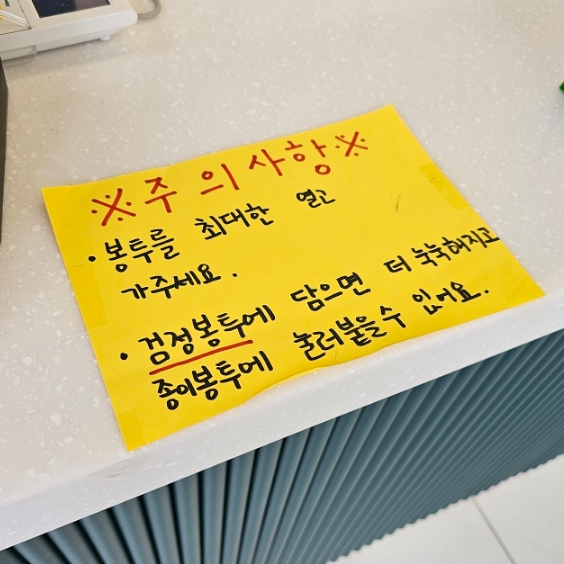 ※주의사항※
• 봉투를 최대한 열고
가주세요.
• 검정봉투에 담으면 더 눅눅해지고
종이봉투에 눌러붙을수 있어요.